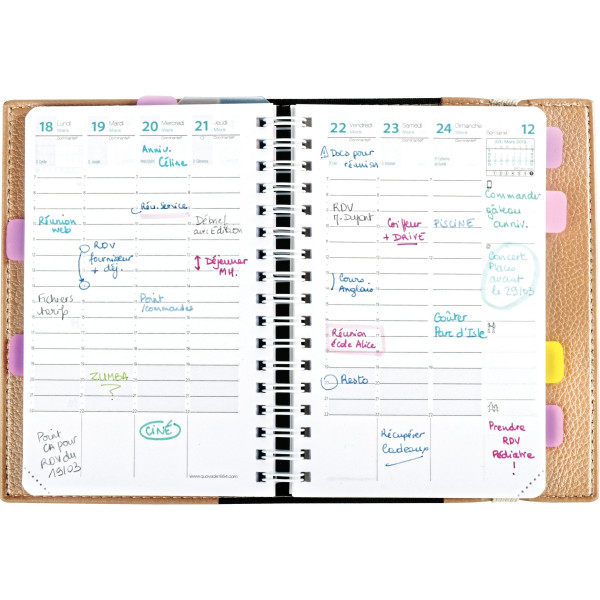 18 Lundi
Mars
19 Mardi
Mars
20 Mercredi
Mars
21 Jeudi
Mars
Anniv.
Céline
Réu. Service
Réunion
web
RDV
fournisseur
+ déj.
Débrief
avec Edition
Déjeuner
MH.
Fichiers
tarifs
Point
/commandes
ZUMBA
?
CINÉ
Point
CA pour
RDV du
19/03
www.quovadis1954.com
22 Vendredi
Mars
23 Samedi
Mars
24 Dimanche
Mars
Semaine 12
Docs pour
réunion
RDV
M. Dupont
Coiffeur
+ DRIVE
PISCINE
Commander
gâteau
anniv.
Concert
Places
avant
le 29/03
Cours
Anglais
Réunion
école Alice
Goûter
Parc d'Isle
Resto
Récupérer
Cadeaux
Prendre
RDV
Pédiatre
!